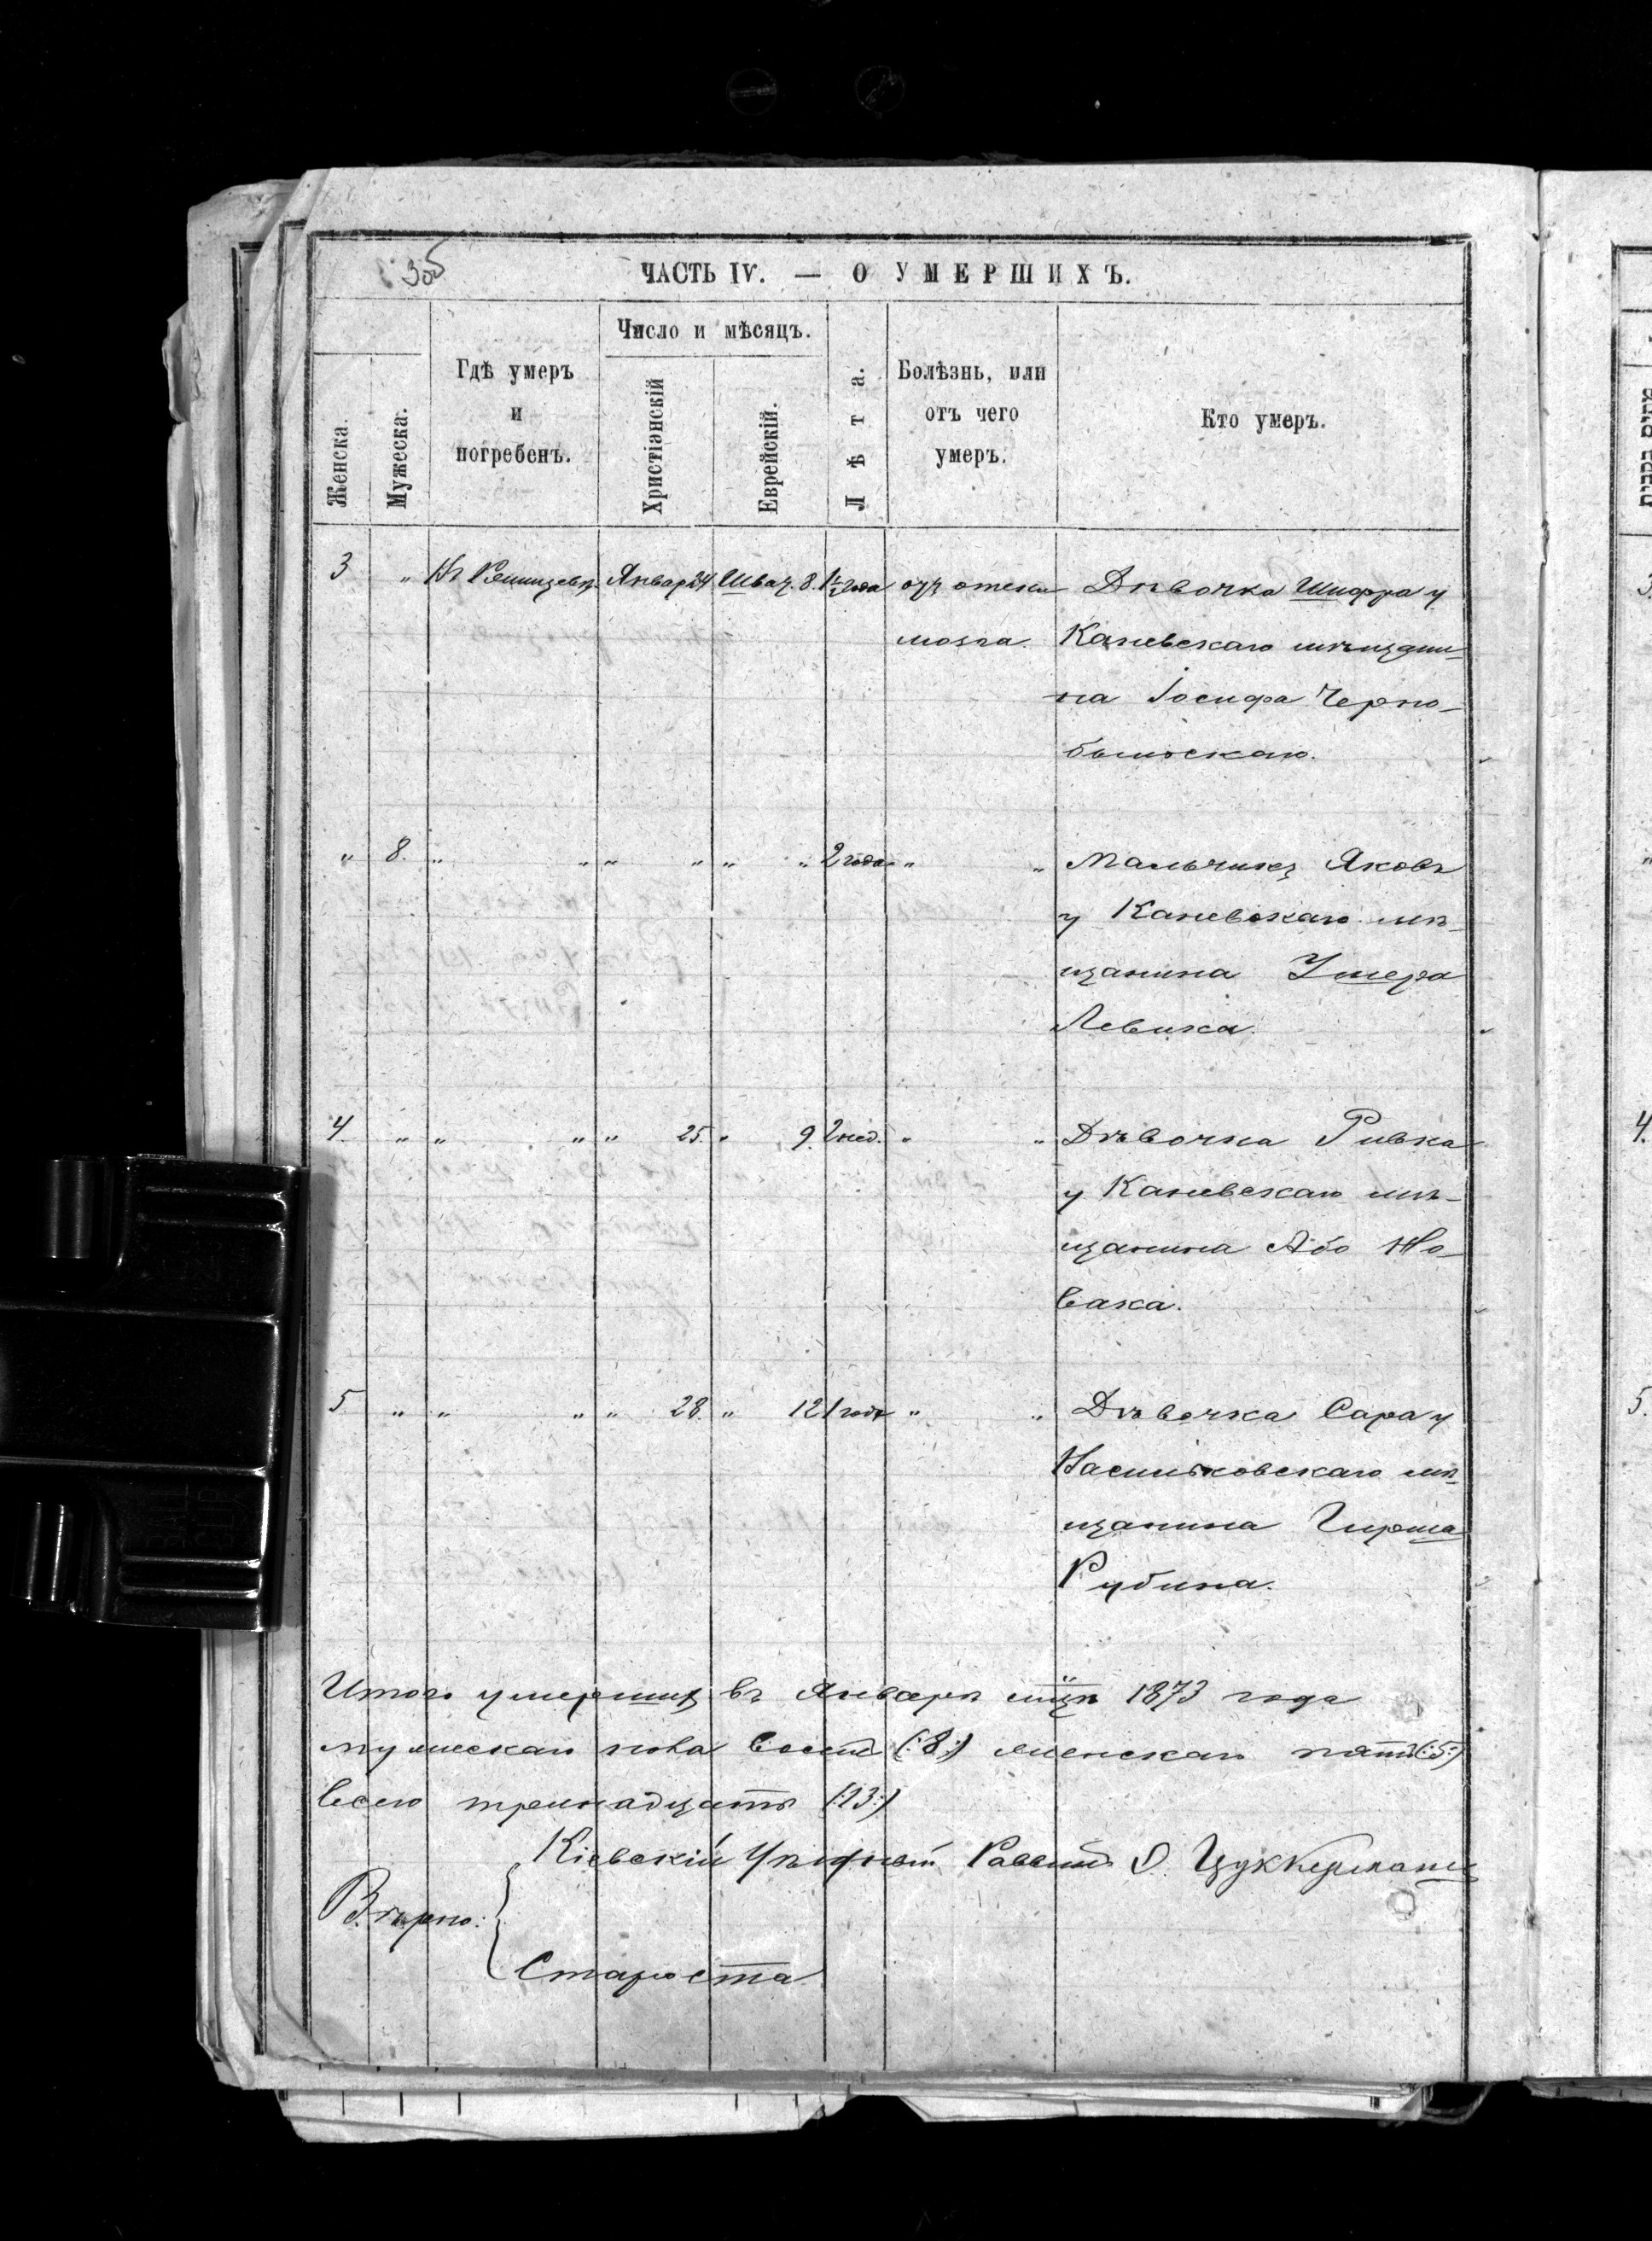 30б
ЧАСТЬ IV. — О УМЕРШИХЪ.
Женска.
Мужеска.
Гдѣ умеръ
и
погребенъ.
Число и мѣсяцъ.
Христіанскій
Еврейскій.
Лѣта.
Болѣзнь, или
отъ чего
умеръ.
Кто умеръ.
3 „ Въ Ржищевѣ. Января 24 Шват. 8. 1½ года отъ отека Дѣвочка Шифра у
мозга. Каневскаго мѣщани-
на Іосифа Черно-
быльскаго.
„ 8. „ „ „ „ „ „ 2 года „ „ Мальчикъ Яковъ
у Каневскаго мѣ-
щанина Ушера
Левика.
4 „ „ „ „ 25. „ 9. 2 нед. „ „ Дѣвочка Ривка
у Каневскаго мѣ-
щанина Або Но-
вака.
5 „ „ „ „ 28. „ 12 1 года „ „ Дѣвочка Сара у
Васильковскаго мѣ-
щанина Гирша
Рубина.
Итого умершихъ въ Январѣ мцѣ 1873 года
мужескаго пола восемь (:8:) женскаго пять (:5:)
всего тринадцать (:13:)
Кіевскій Уѣздный Раввинъ О. Цуккерманъ
Вѣрно:
Староста
3.
4.
5.